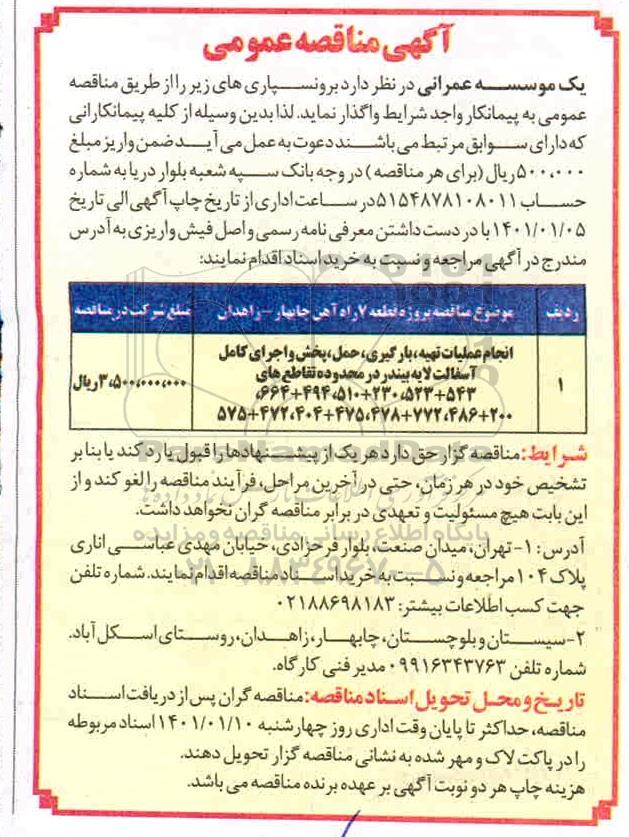 آگهی مناقصه عمومی
یک موسسه عمرانی در نظر دارد برونسپاری های زیر را از طریق مناقصه
عمومی به پیمانکار واجد شرایط واگذار نماید. لذا بدین وسیله از کلیه پیمانکارانی
که دارای سوابق مرتبط می باشند دعوت به عمل می آید ضمن واریز مبلغ
۵۰۰،۰۰۰ ریال (برای هر مناقصه) در وجه بانک سپه شعبه بلوار دریا به شماره
حساب ۵۱۵۴۸۷۸۱۰۸۰۱۱ در ساعت اداری از تاریخ چاپ آگهی الی تاریخ
۱۴۰۱/۰۱/۰۵ با در دست داشتن معرفی نامه رسمی و اصل فیش واریزی به آدرس
مندرج در آگهی مراجعه و نسبت به خرید اسناد اقدام نمایند:
ردیف موضوع مناقصه پروژه قطعه ۷ راه آهن چابهار – زاهدان مبلغ شرکت در مناقصه
انجام عملیات تهیه، بارگیری، حمل، پخش و اجرای کامل
آسفالت لایه بیندر در محدوده تقاطع های
۱ ۵۴۳+۵۲۳، ۲۳۰+۵۱۰، ۴۹۴+۶۶۴، ۳،۵۰۰،۰۰۰،۰۰۰ ریال
۲۰۰+۴۸۶، ۷۷۲+۴۷۸، ۴۷۵+۴۰۴، ۴۷۲+۵۷۵
شرایط: مناقصه گزار حق دارد هر یک از پیشنهادها را قبول یا رد کند یا بنا بر
تشخیص خود در هر زمان، حتی در آخرین مراحل، فرآیند مناقصه را لغو کند و از
این بابت هیچ مسئولیت و تعهدی در برابر مناقصه گران نخواهد داشت.
پایگاه اطلاع رسانی مناقصه و مزایده
آدرس: ۱- تهران، میدان صنعت، بلوار فرحزادی، خیابان مهدی عباسی اناری
۰۲۱-۸۸۳۴۹۶۷۰-۵
پلاک ۱۰۴ مراجعه و نسبت به خرید اسناد مناقصه اقدام نمایند. شماره تلفن
جهت کسب اطلاعات بیشتر: ۰۲۱۸۸۶۹۸۱۸۳
۲- سیستان و بلوچستان، چابهار، زاهدان، روستای اسکل آباد.
شماره تلفن ۰۹۹۱۶۳۴۳۷۶۳ مدیر فنی کارگاه.
تاریخ و محل تحویل اسناد مناقصه: مناقصه گران پس از دریافت اسناد
مناقصه، حداکثر تا پایان وقت اداری روز چهارشنبه ۱۴۰۱/۰۱/۱۰ اسناد مربوطه
را در پاکت لاک و مهر شده به نشانی مناقصه گزار تحویل دهند.
هزینه چاپ هر دو نوبت آگهی بر عهده برنده مناقصه می باشد.